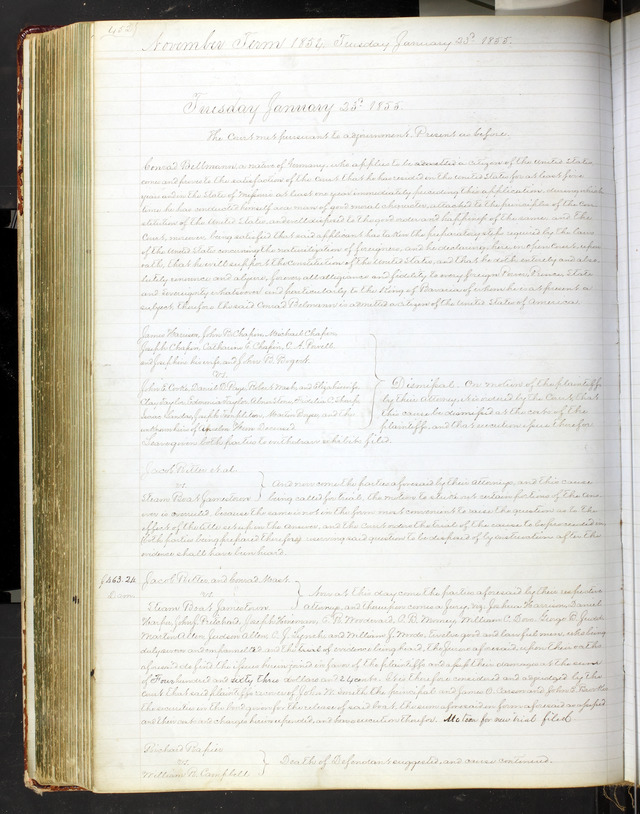 402
November Term 1854. Tuesday January 23d 1855.
Tuesday January 23d 1855
The Court met pursuant to adjournment. Present as before.
Conrad Bellmann a native of Germany, who applies to be admitted a citizen of the United States
comes and proves to the satisfaction of the Court that he has resided in the United States for at least five
years and in the State of Missouri at least one year immediately preceding this application, during which
time he has conducted himself as a man of good moral character, attached to the principles of the Con-
stitution of the United States, and well disposed to the good order and happiness of the same: and the
Court, moreover, being satisfied that said applicant has taken the preparatory steps required by the laws
of the United States concerning the naturalization of foreigners, and he declaring here in open court, upon
oath, that he will support the Constitution of the United States, and that he doth entirely and abso-
lutely renounce and abjure forever all allegiance and fidelity to every foreign Power, Prince, State
and sovereignty whatsoever and particularly to the King of Bavaria of whom he is at present a
subject, therefore the said Conrad Bellmann is admitted a citizen of the United States of America.
James Harrison, John B. Chapin, Michael Chapin,
Joseph Chapin, Catharine E. Chapin, C. A. Powell
and Josephine his wife, and John B. Bogert
vs
John E. Cooke, Daniel D. Page, Robert and Eliza his wife
Clay Taylor, Edmonia Taylor, Fidelio C. Sharp
Isaac Landes, Joseph Templeton, and the
unknown heirs of deceased
Dismissal. On motion of the plaintiffs
by their attorney, it is ordered by the Court that
this cause be dismissed at the costs of the
plaintiffs, and that execution issue therefor.
Leave given both parties to withdraw exhibits filed.
Jacob Ritter et al
vs.
Steam Boat Jamestown
And now come the parties aforesaid by their attorneys, and this cause
being called for trial, the motion to strike out certain portions of the ans-
wer is overruled, because the same is not in the form most convenient to raise the question as to the
effect of the title set up in the answer, and the Court orders the trial of the cause to be proceeded in
both parties being prepared therefor; reserving said question to be disposed of by instructions after the
evidence shall have been heard.
$463.24
Dam
Jacob Ritter, and Conrad
vs
Steam Boat Jamestown
Now at this day come the parties aforesaid by their respective
attorneys, and thereupon comes a jury, viz, Joshua Harrison, Daniel
John J. Prichard, Joseph Hickman, C. B. Woodward, A. B. William C. George D.
Martin Allen, Judson Allen, C. J. Lynch, and William J. Woods, twelve good and lawful men, who being
duly sworn and empannelled and the trial of evidence being heard, the jurors aforesaid, upon their oaths
aforesaid do find the issue herein joined in favor of the plaintiffs and assess their damages at the sum
of Four hundred and sixty three dollars and 24 cents. It is therefore considered and adjudged by the
court that said plaintiffs recover of John W. Smith the principal and James O. and John S.
the securities in the bond given for the release of said boat, the sum aforesaid in form aforesaid assessed
and their costs and charges herein expended, and have execution therefor. Motion for new trial filed.
Richard Rapier
vs.
William R. Campbell
Death of Defendant suggested, and cause continued.